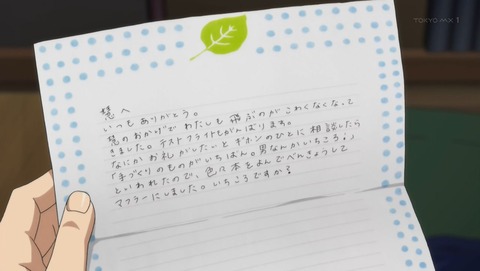 TOKYO MX 1
慧へ
いつもありがとう。
慧のおかげでわたしも飛ぶのがこわくなくなって
きました。テストフライトもがんばります。
なにかお礼がしたいとギホンのひとに相談したら
「手づくりのものがいちばん。男なんかいちころ♪」
といわれたので、色々本をよんでべんきょうして
マフラーにしました。いちころですか?